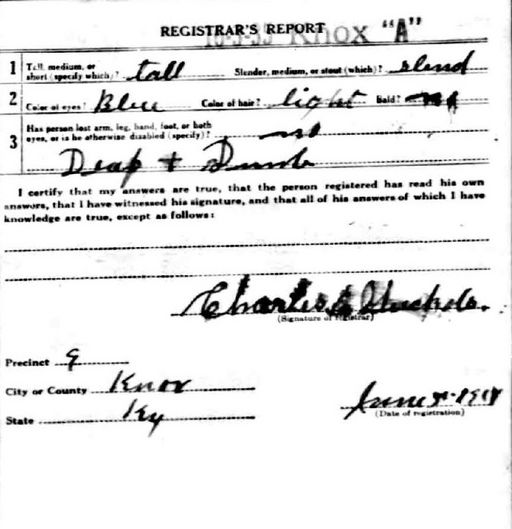 REGISTRAR'S REPORT
16-3-33 KNOX "A"
1 Tall, medium, or short (specify which)? tall Slender, medium, or stout (which)? slend
2 Color of eyes? Blue Color of hair? light Bald? no
3 Has person lost arm, leg, hand, foot, or both eyes, or is he otherwise disabled (specify)? no
Deap + Dumb
I certify that my answers are true, that the person registered has read his own
answers, that I have witnessed his signature, and that all of his answers of which I have
knowledge are true, except as follows:
Charles
(Signature of Registrar)
Precinct 9
City or County Knox
State Ky
June
(Date of registration)